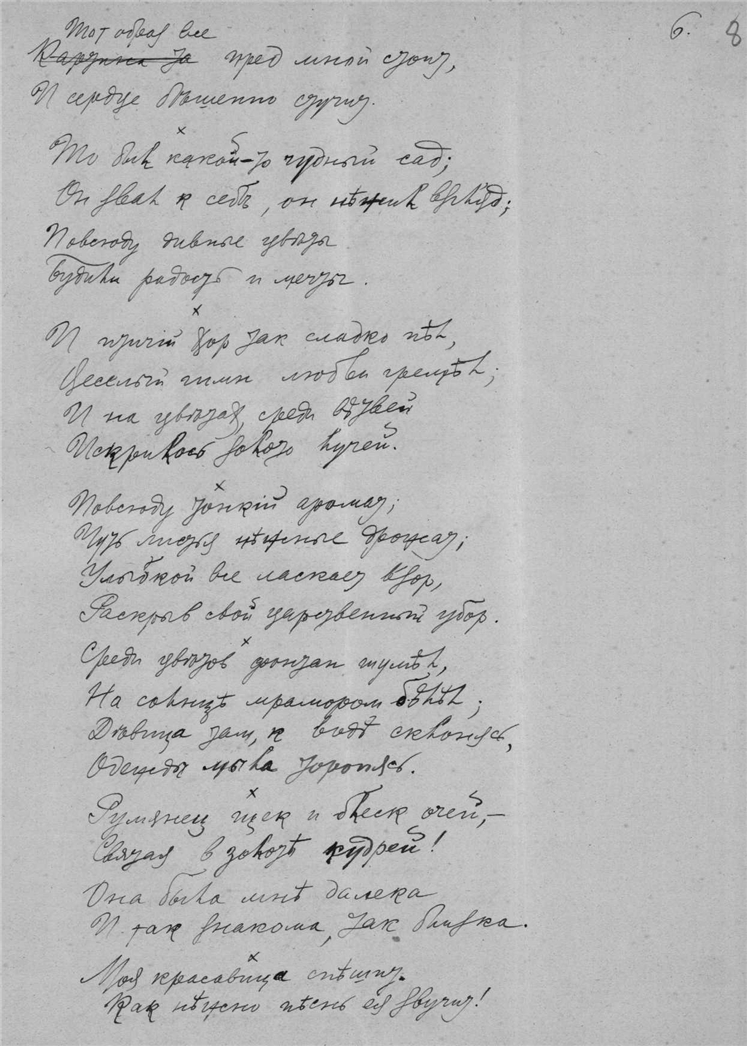 Тот образ все
6. 8
Картина та пред мной стоит,
И сердце бѣшенно стучит.
То был какой-то чудный сад;
Он звал к себѣ, он нѣжил взгляд;
Повсюду дивные цвѣты
Будили радость и мечты.
И птичій хор так сладко пѣл,
Веселый гимн любви гремѣл;
И на цвѣтах, среди вѣтвей
Искрилось золото лучей.
Повсюду тонкій аромат;
Чуть листья нѣжные дрожат;
Улыбкой все ласкает взор,
Раскрыв свой царственный убор.
Среди цвѣтов фонтан шумѣл,
На солнцѣ мрамором бѣлѣл;
Дѣвица там, к водѣ склонясь,
Одежды мыла торопясь.
Румянец щек и блеск очей,—
Святая в золотѣ кудрей!
Она была мнѣ далека
И так знакома, так близка.
Моя красавица спѣшит.
Как нѣжно пѣснь ея звучит!